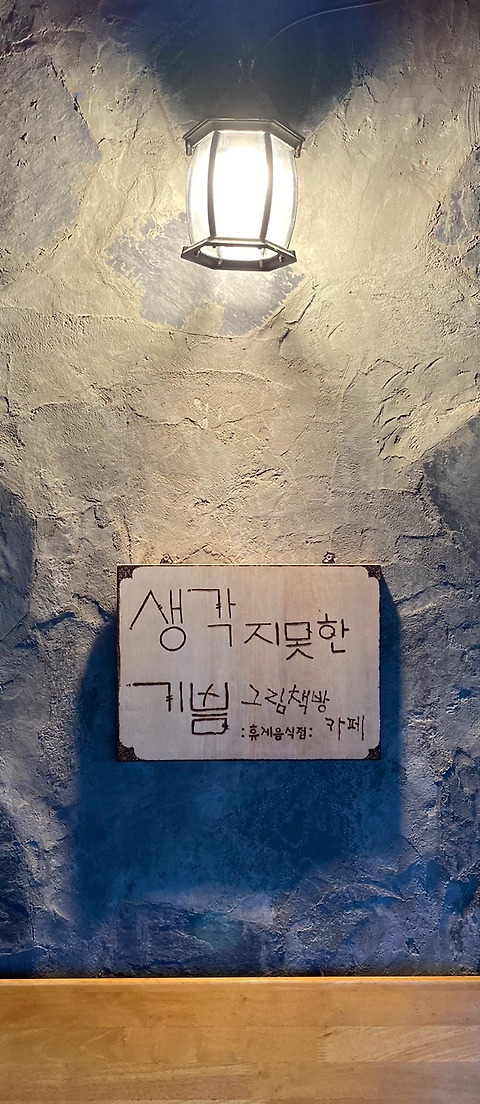 생각지못한
기쁨 그림책방
:휴게음식점: 카페